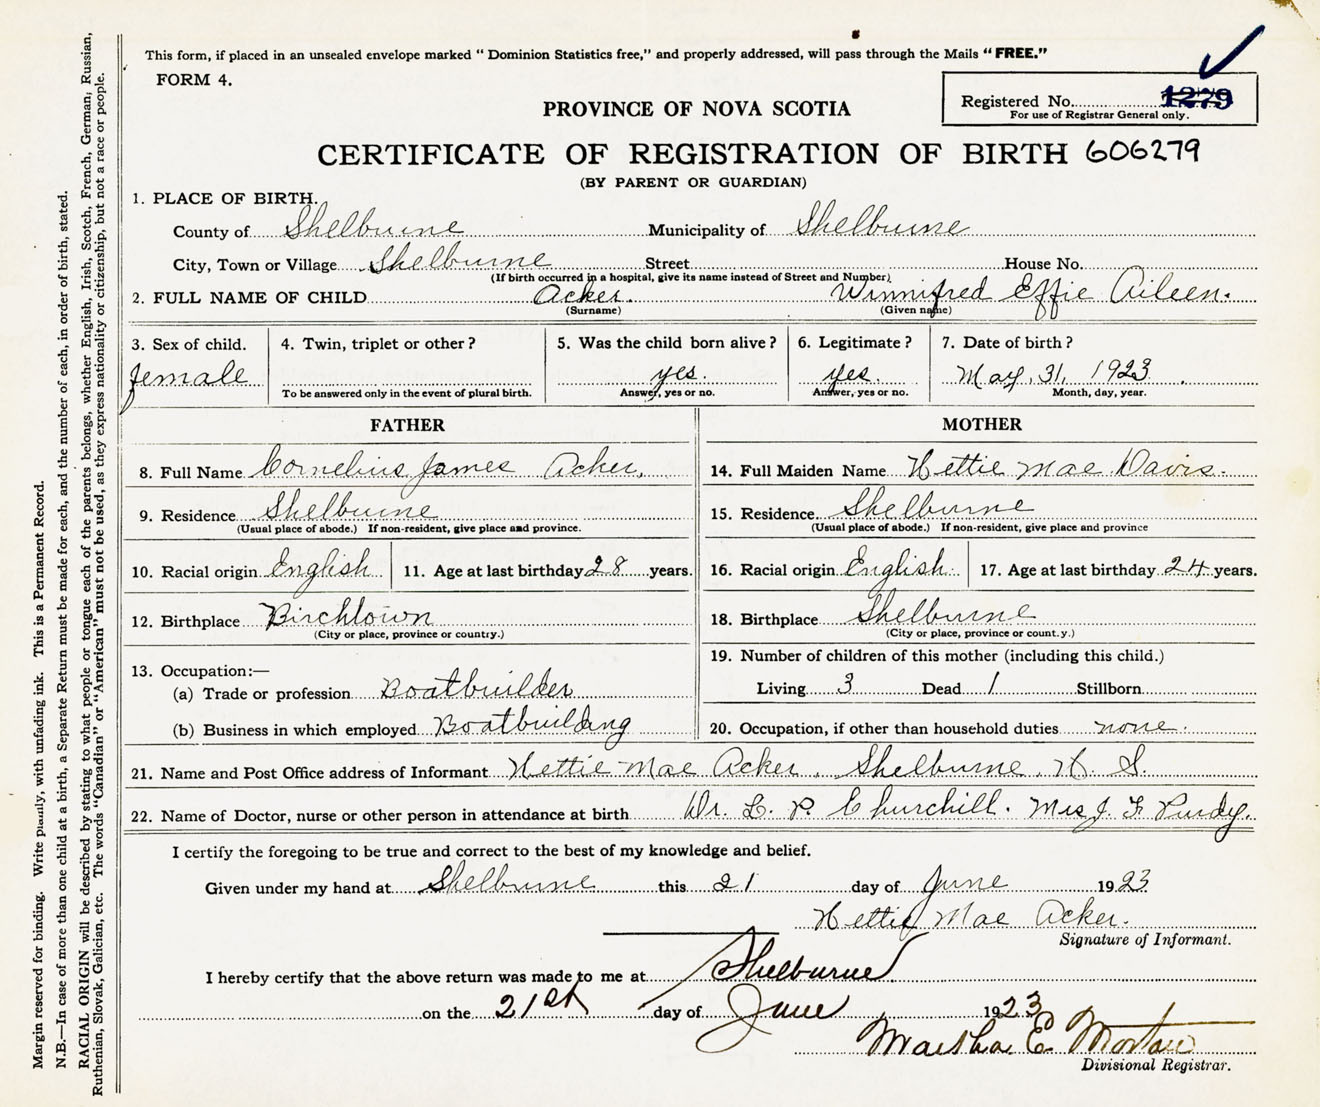 This form, if placed in an unsealed envelope marked “ Dominion Statistics free,” and properly addressed, will pass through the Mails “ FREE.”
FORM 4.
Registered No. 1279
For use of Registrar General only.
PROVINCE OF NOVA SCOTIA
CERTIFICATE OF REGISTRATION OF BIRTH 606279
(BY PARENT OR GUARDIAN)
1. PLACE OF BIRTH.
County of Shelburne Municipality of Shelburne
City, Town or Village Shelburne Street House No.
(If birth occurred in a hospital, give its name instead of Street and Number)
2. FULL NAME OF CHILD Acker. Winnifred Effie Aileen.
(Surname) (Given name)
3. Sex of child. 4. Twin, triplet or other ? 5. Was the child born alive ? 6. Legitimate ? 7. Date of birth ?
female yes. yes. May, 31, 1923
To be answered only in the event of plural birth. Answer, yes or no. Answer, yes or no. Month, day, year.
FATHER MOTHER
8. Full Name Cornelius James Acker, 14. Full Maiden Name Hettie Mae Davis.
9. Residence Shelburne 15. Residence. Shelburne
(Usual place of abode.) If non-resident, give place and province. (Usual place of abode.) If non-resident, give place and province
10. Racial origin English 11. Age at last birthday 28 years. 16. Racial origin English. 17. Age at last birthday 24 years.
12. Birthplace Birchtown 18. Birthplace Shelburne
(City or place, province or country.) (City or place, province or count.y.)
13. Occupation:— 19. Number of children of this mother (including this child.)
(a) Trade or profession Boatbuilder Living 3 Dead 1 Stillborn
(b) Business in which employed Boatbuilding 20. Occupation, if other than household duties none.
21. Name and Post Office address of Informant Hettie Mae Acker. Shelburne, N. S.
22. Name of Doctor, nurse or other person in attendance at birth Dr. L. P. Churchill. Mrs J. F. Purdy.
I certify the foregoing to be true and correct to the best of my knowledge and belief.
Given under my hand at Shelburne this 21 day of June 1923
Hettie Mae Acker.
Signature of Informant.
I hereby certify that the above return was made to me at Shelburne
on the 21st day of June 1923
Martha E. Morton
Divisional Registrar.
Margin reserved for binding. Write plainly, with unfading ink. This is a Permanent Record.
N.B.—In case of more than one child at a birth, a Separate Return must be made for each, and the number of each, in order of birth, stated.
RACIAL ORIGIN will be described by stating to what people or tongue each of the parents belongs, whether English, Irish, Scotch, French, German, Russian,
Ruthenian, Slovak, Galician, etc. The words “Canadian” or “American” must not be used, as they express nationality or citizenship, but not a race or people.